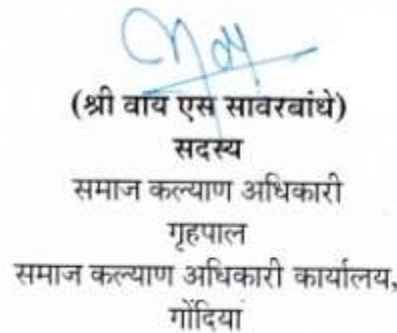 (श्री वाय एस सावरबांधे)
सदस्य
समाज कल्याण अधिकारी
गृहपाल
समाज कल्याण अधिकारी कार्यालय,
गोंदिया